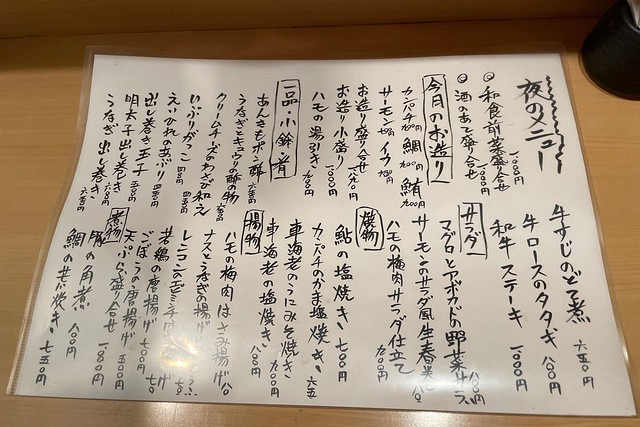 夜のメニュー
◎和食前菜盛り合せ 一,000円
◎酒のあて盛り合せ 一,000円
今月のお造り
カンパチ 鯛 鮪
サーモン イカ
お造り盛り合せ
お造り小盛り
ハモの湯引き 九00円
一品・小鉢・肴
あんきもポン酢 六五0円
うなぎとキュウリの酢の物
クリームチーズのわさび和え
いぶりがっこ 四00円
えいひれのあぶり 四五0円
出し巻き玉子 五00円
明太子出し巻き 六00円
うなぎ出し巻き 九五0円
牛すじのどて煮 六五0円
牛ロースのタタキ 八00円
和牛ステーキ 一,000円
サラダ
マグロとアボカドの野菜サラダ
サーモンのサラダ風生春巻
ハモの梅肉サラダ仕立て 九00円
焼物
鮎の塩焼き 七00円
カンパチのかま塩焼き 六五
車海老のうにみそ焼き
車海老の塩焼き 九00円
揚物
ハモの梅肉はさみ揚げ
ナスとうなぎの揚げ出し
レンコン
若鶏の唐揚げ 七00円
ごぼうの唐揚げ 五00円
天ぷら盛り合せ 一,八00円
煮物
豚の角煮 八00円
鯛のあら炊き 七五0円